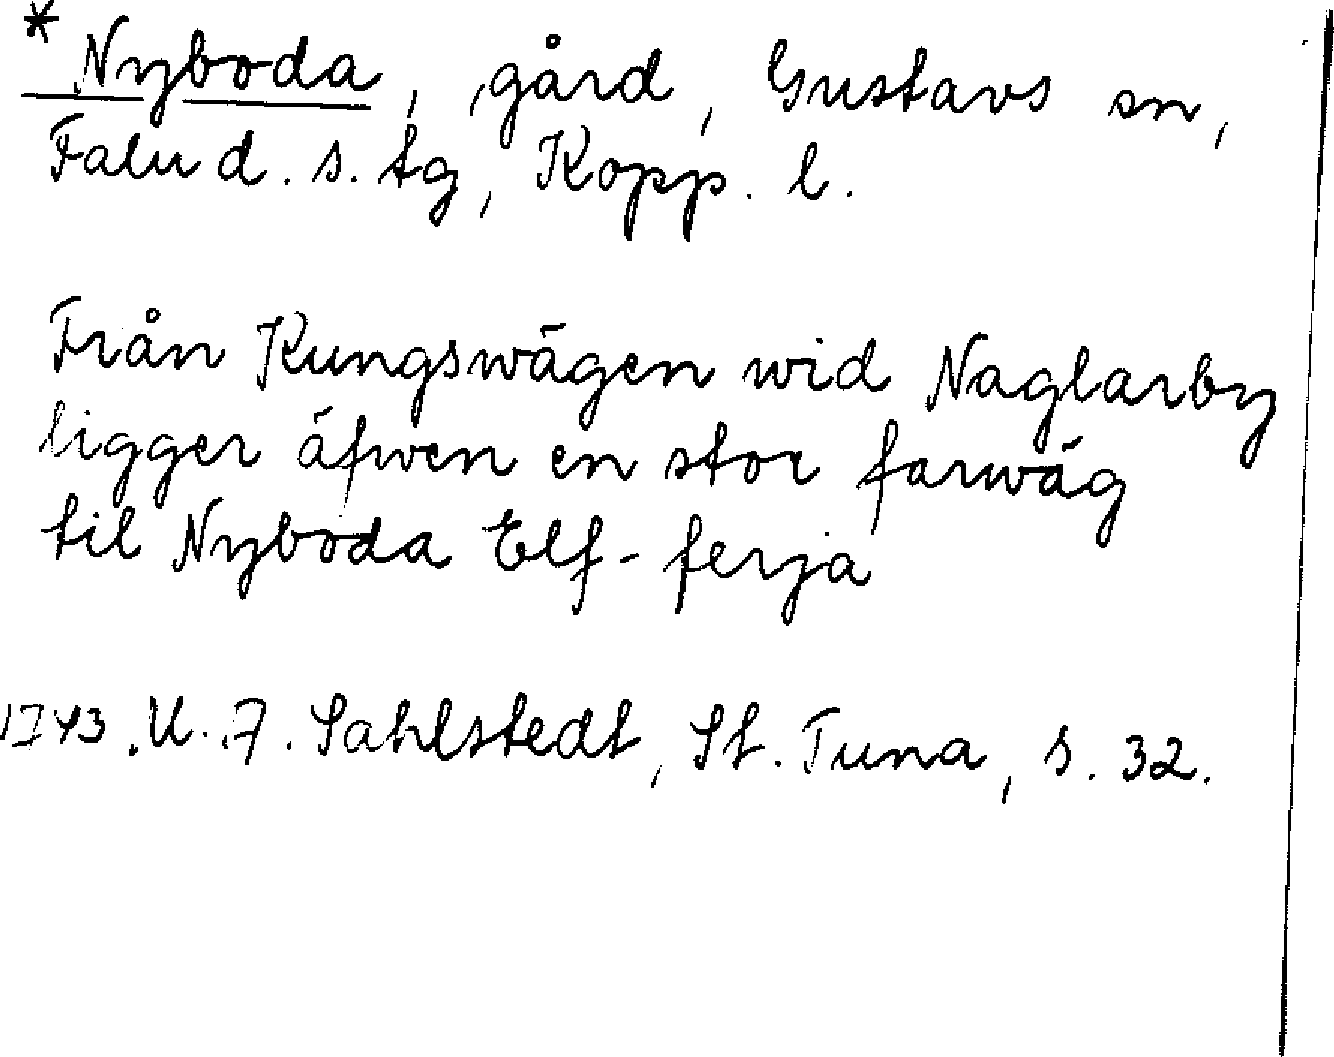 * Nyboda, gård, Gustavs sn,
Falu d. s. tg, Kopp. l.
Från Kungswägen wid Naglarby
ligger äfwen en stor farwäg
til Nyboda Elf-ferja
1743. U. A. Sahlstedt, St. Tuna, s. 32.